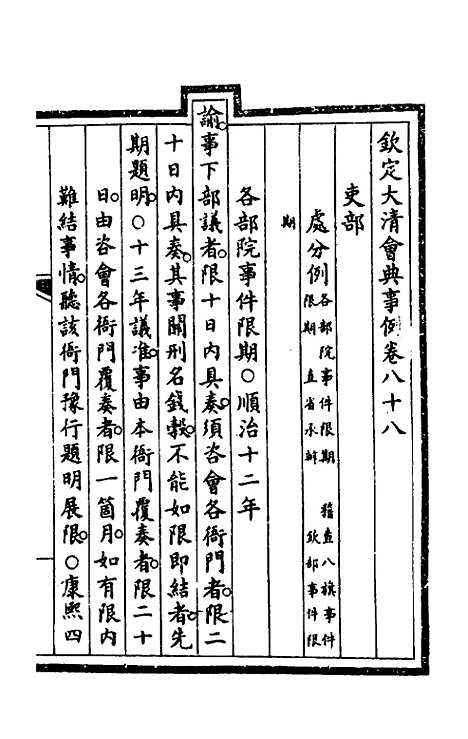 欽定大清會典事例卷八十八
吏部
處分例 各部院事件限期 稽查八旗事件
限期 直省承辦 欽部事件限
期
各部院事件限期○順治十二年
諭事下部議者。限十日內具奏。須咨會各衙門者。限二
十日內具奏。其事關刑名錢穀。不能如限即結者。先
期題明。○十三年議准。事由本衙門覆奏者。限二十
日。由咨會各衙門覆奏者。限一箇月。如有限內
難結事情。聽該衙門豫行題明展限。○康熙四